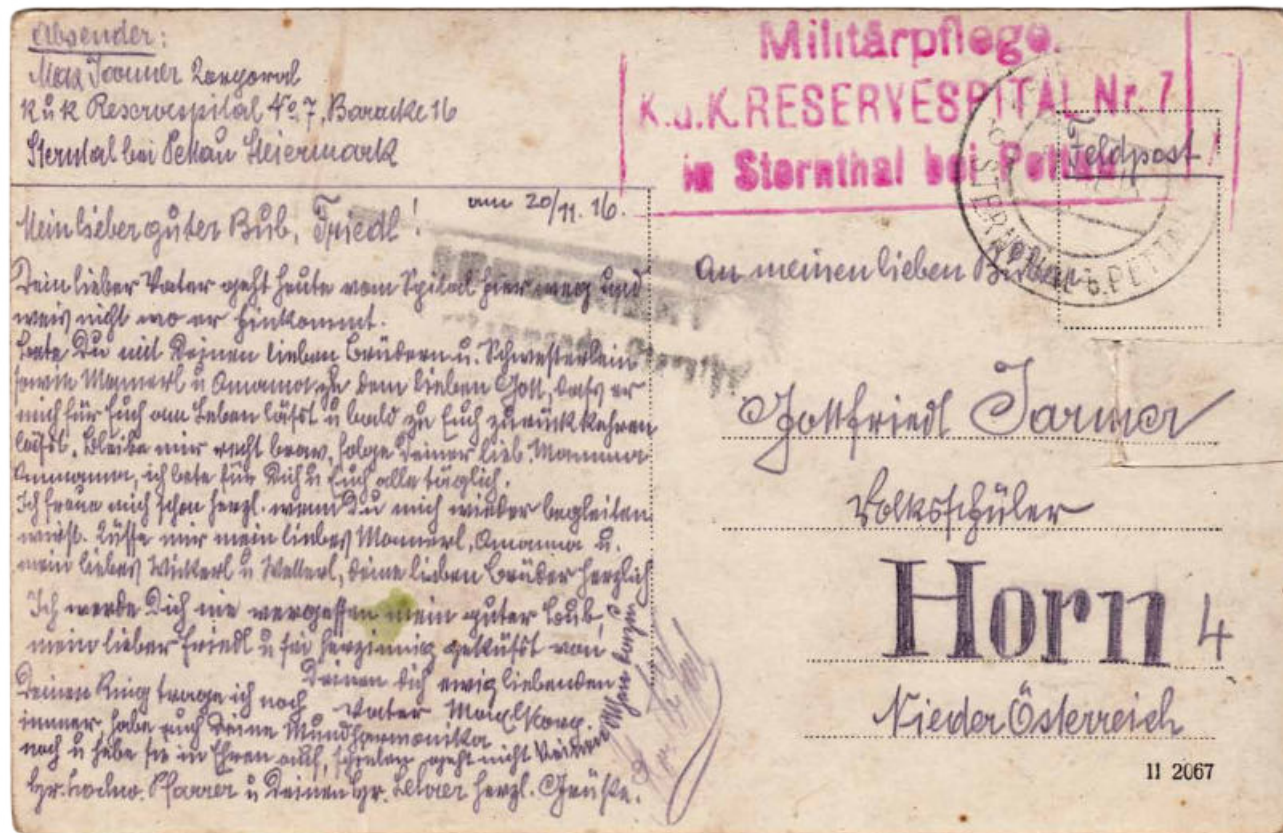 Absender:
Max Jarmer Korporal
k u k Reservespital No 7, Baracke 16
Sterntal bei Pettau Steiermark
Militärpflege.
K.u.K. RESERVESPITAL Nr. 7
in Sternthal bei Pettau
Feldpost
STERNTHAL b. PETTAU
am 20/11. 16.
Mein lieber guter Bub, Friedl!
Dein lieber Vater geht heute vom Spital hier weg und
weis nicht wo er hinkommt.
Bete Du mit Deinen lieben Brüdern u. Schwesterlein
sowie Mamerl u Omama, zu dem lieben Gott, dass er
mich für Euch am Leben lässt u bald zu Euch zurückkehren
lässt. Bleibe mir recht brav, folge Deiner lieb. Mamma
Ommama, ich bete für Dich u Euch alle täglich.
Ich freue mich schon herzl. wenn Du mich wieder begleiten
wirst. Küsse mir mein liebes Mamerl, Omama u.
mein liebes Wickerl u Walterl, deine lieben Brüder herzlich
Ich werde Dich nie vergessen mein guter Bub,
mein lieber Friedl u sei herzinnig geküsst von
Deinen dich ewig liebenden
Vater Maxl Korp.
Deinen Ring trage ich noch
immer, habe auch Deine Mundharmonika
noch u hebe sie in Ehren auf, spielen geht nicht
Hr. hochw. Pfarrer u Deinen Hr. Lehrer herzl. Grüße.
An meinen lieben Buben
Gottfriedl Jarmer
Volksschüler
Horn 4
NiederÖsterreich
II 2067